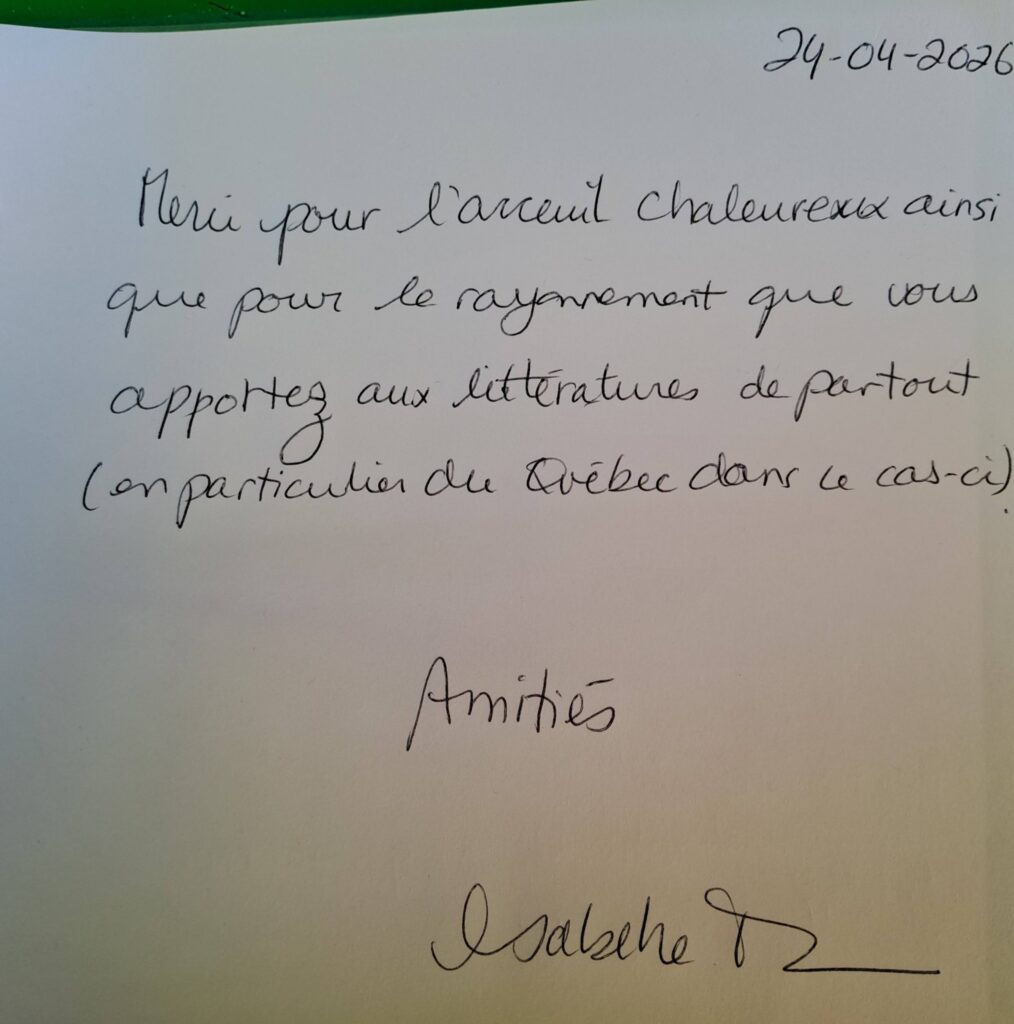 24-04-2026
Merci pour l'acceuil chaleureux ainsi
que pour le rayonnement que vous
apportez aux littératures de partout
(en particulier du Québec dans ce cas-ci).
Amitiés
Isabelle